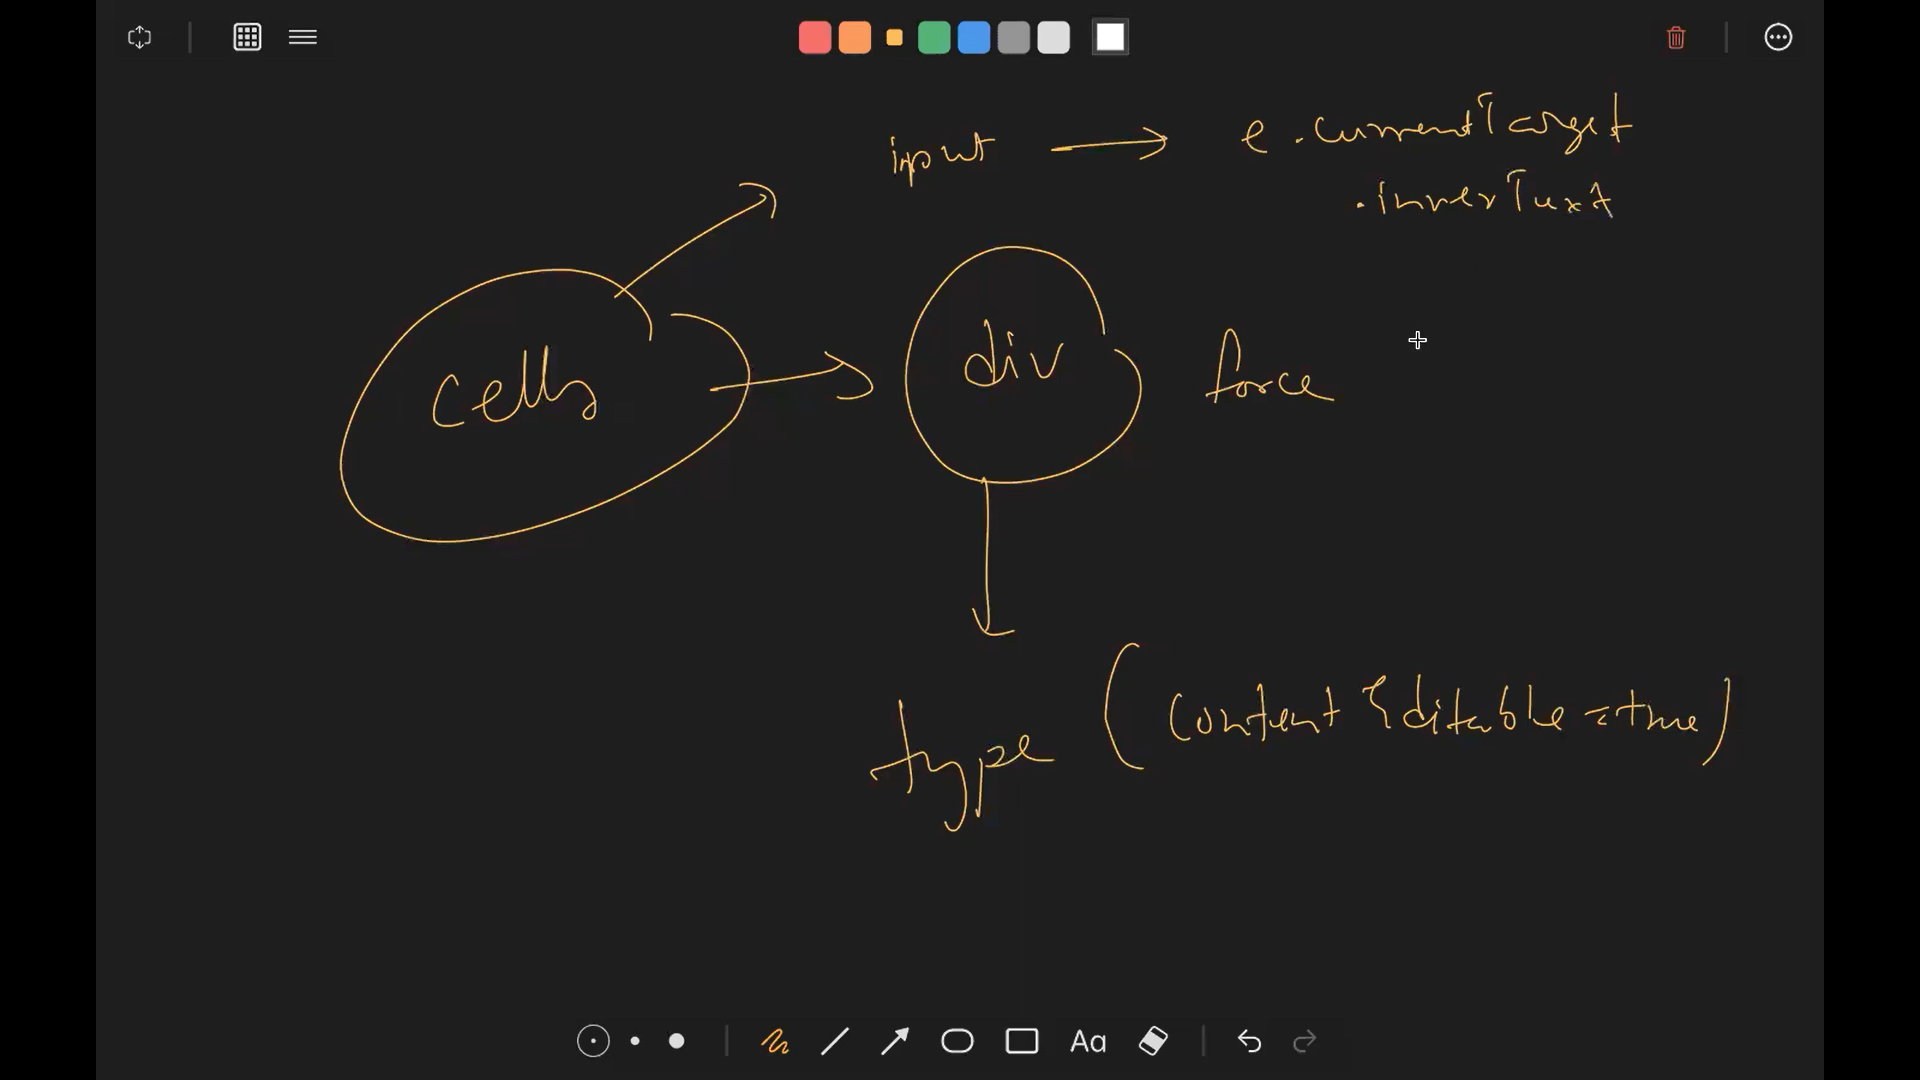 input → e.currentTarget
.innerText
cells → div force
type (contentEditable=true)
Aa